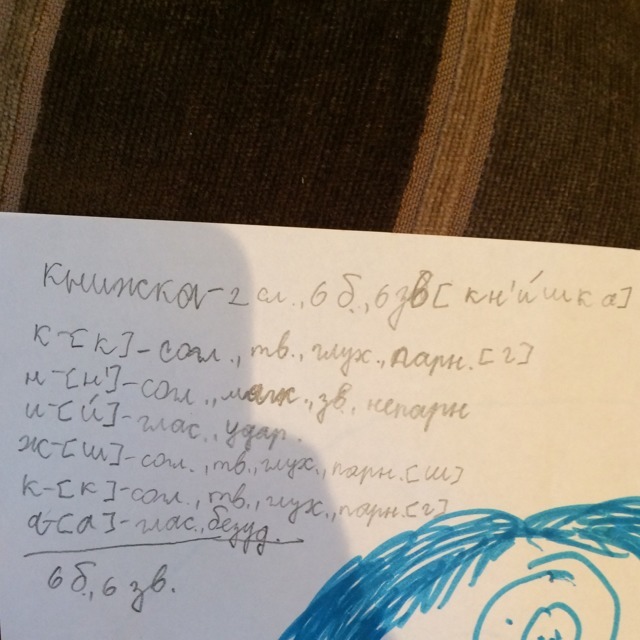 книжка - 2 сл., 6 б., 6 зв [кн'и́шка]
к-[к]-согл., тв., глух., парн. [г]
н-[н']-согл., мягк., зв., непарн
и-[и́]-глас., удар.
ж-[ш]-согл., тв., глух., парн. [ш]
к-[к]-согл., тв., глух., парн. [г]
а-[а]-глас., безуд.
6 б., 6 зв.